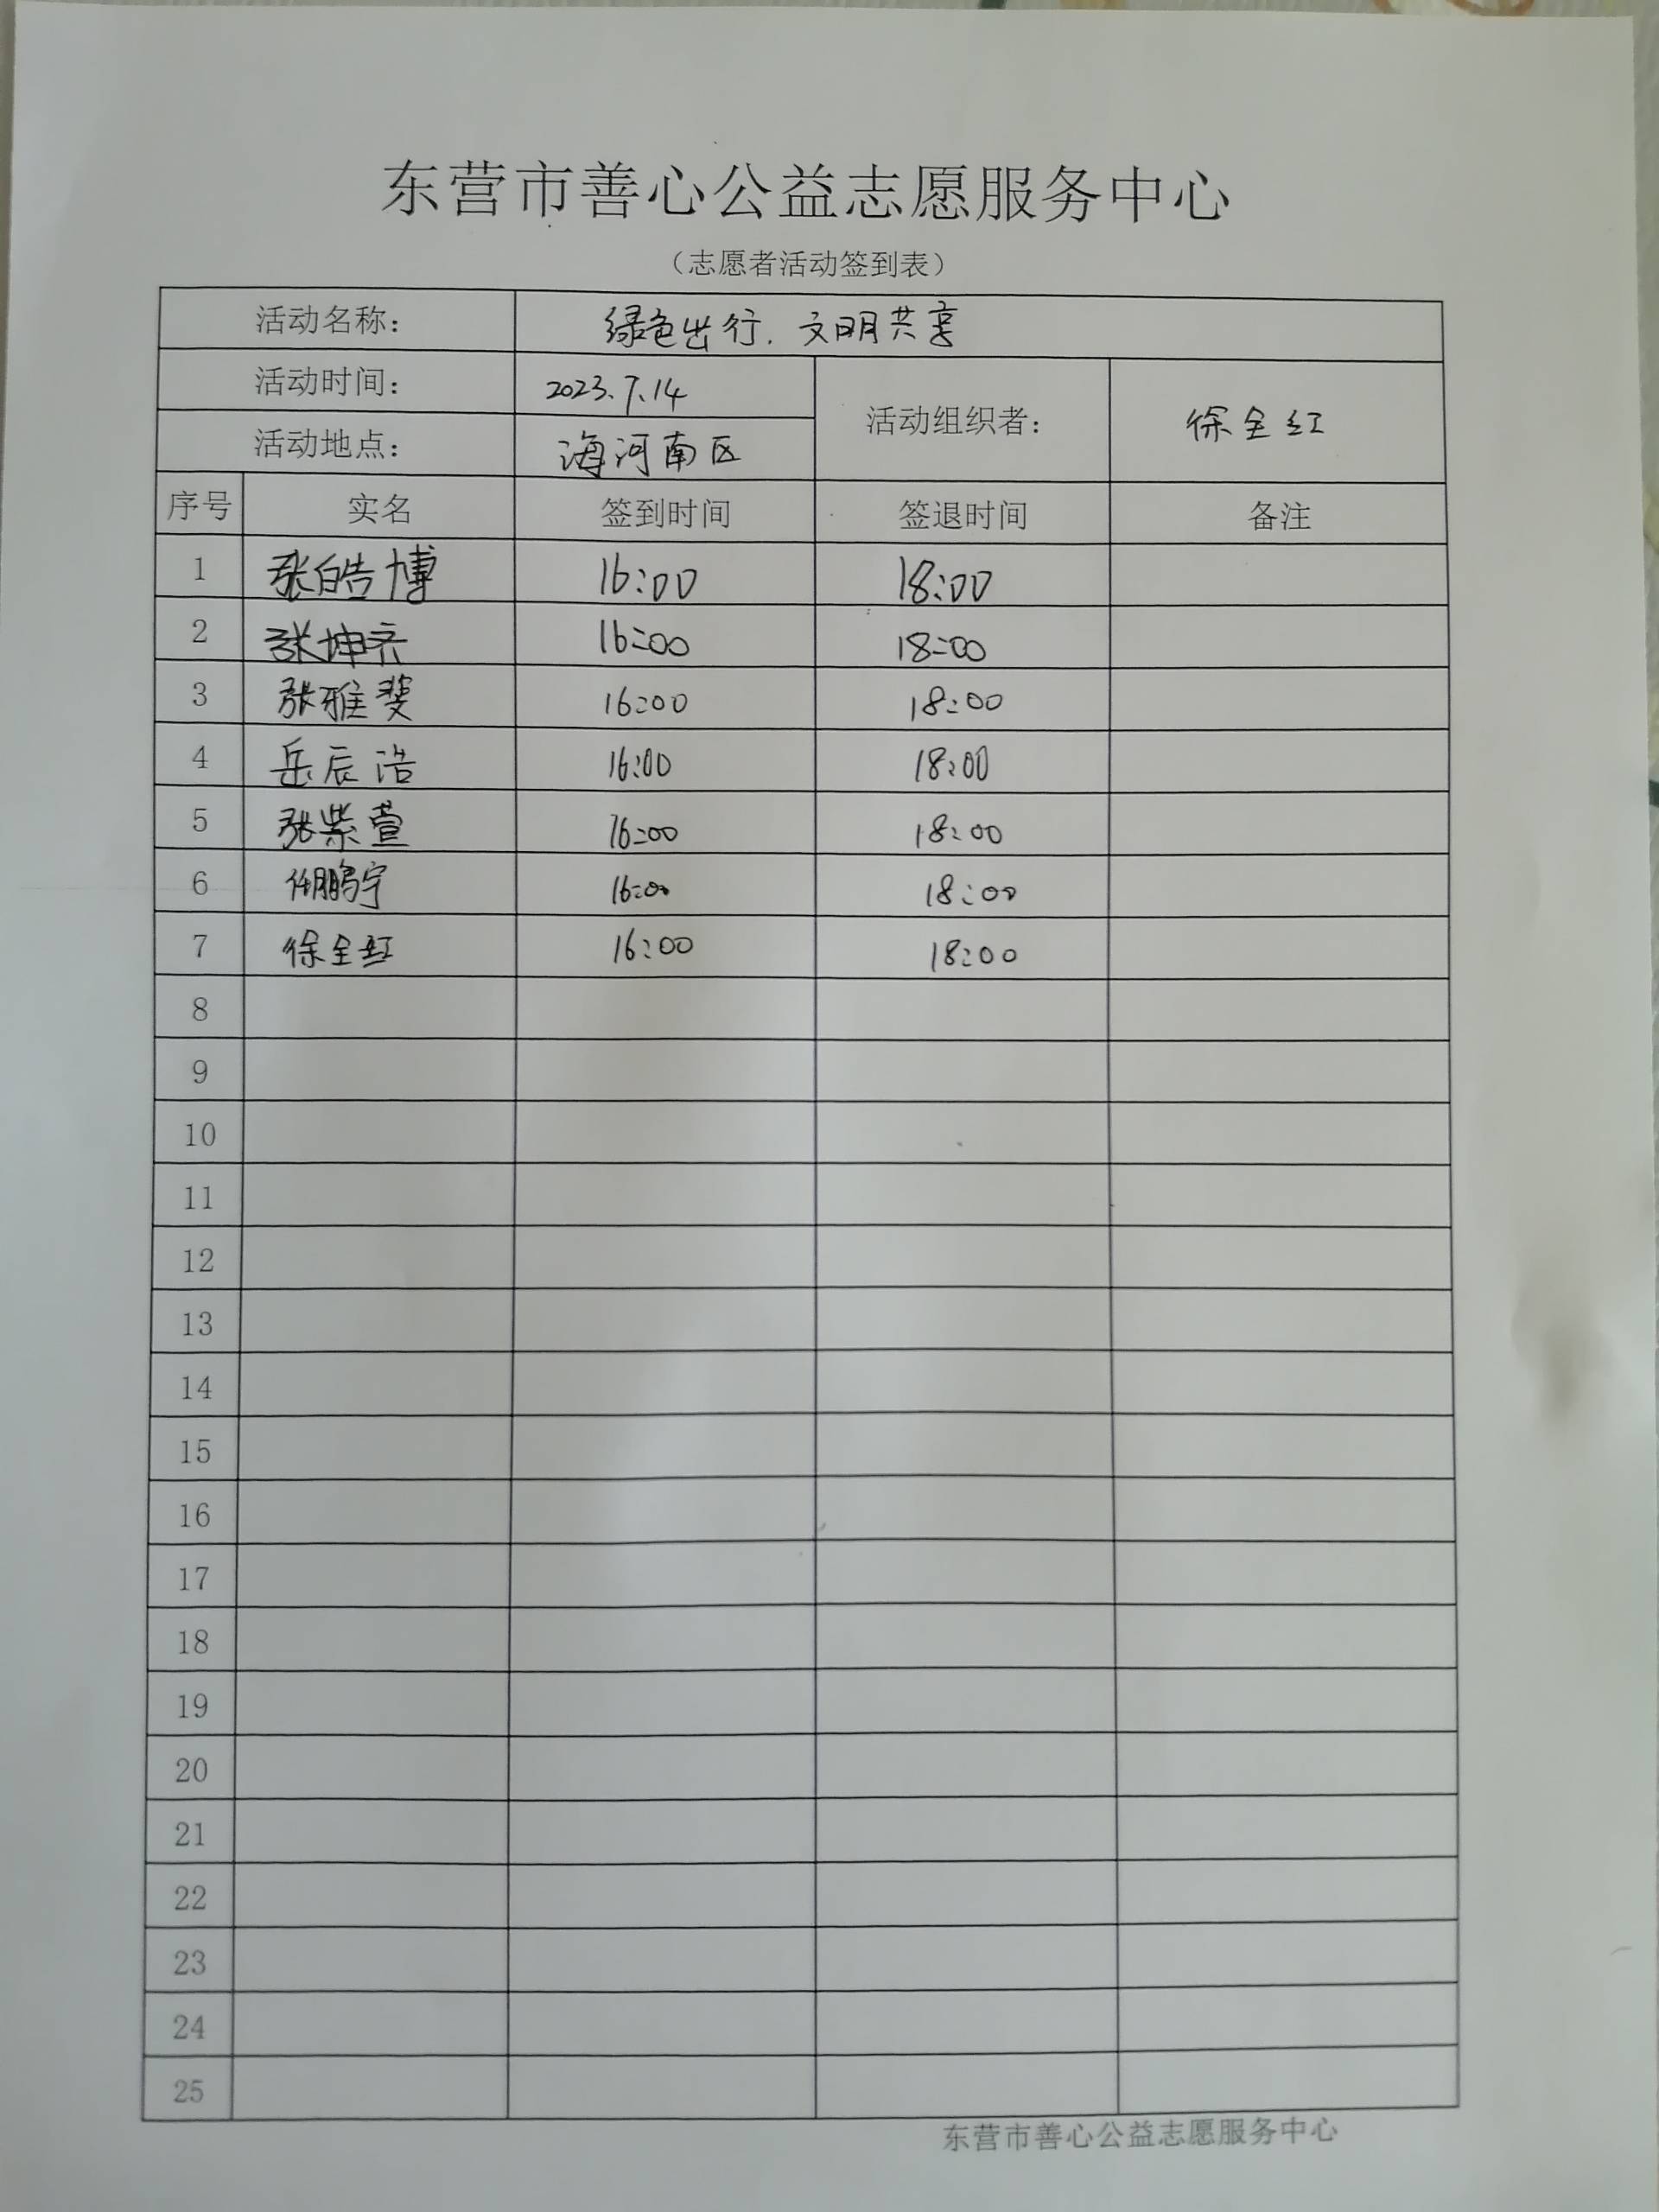 东营市善心公益志愿服务中心
（志愿者活动签到表）
活动名称： 绿色出行，文明共享
活动时间： 2023.7.14
活动组织者： 徐全红
活动地点： 海河南区
序号 实名 签到时间 签退时间 备注
1 张皓博 16:00 18:00
2 张坤齐 16:00 18:00
3 张雅斐 16:00 18:00
4 岳辰浩 16:00 18:00
5 张紫萱 16:00 18:00
6 任鹏宇 16:00 18:00
7 徐全红 16:00 18:00
8
9
10
11
12
13
14
15
16
17
18
19
20
21
22
23
24
25
东营市善心公益志愿服务中心